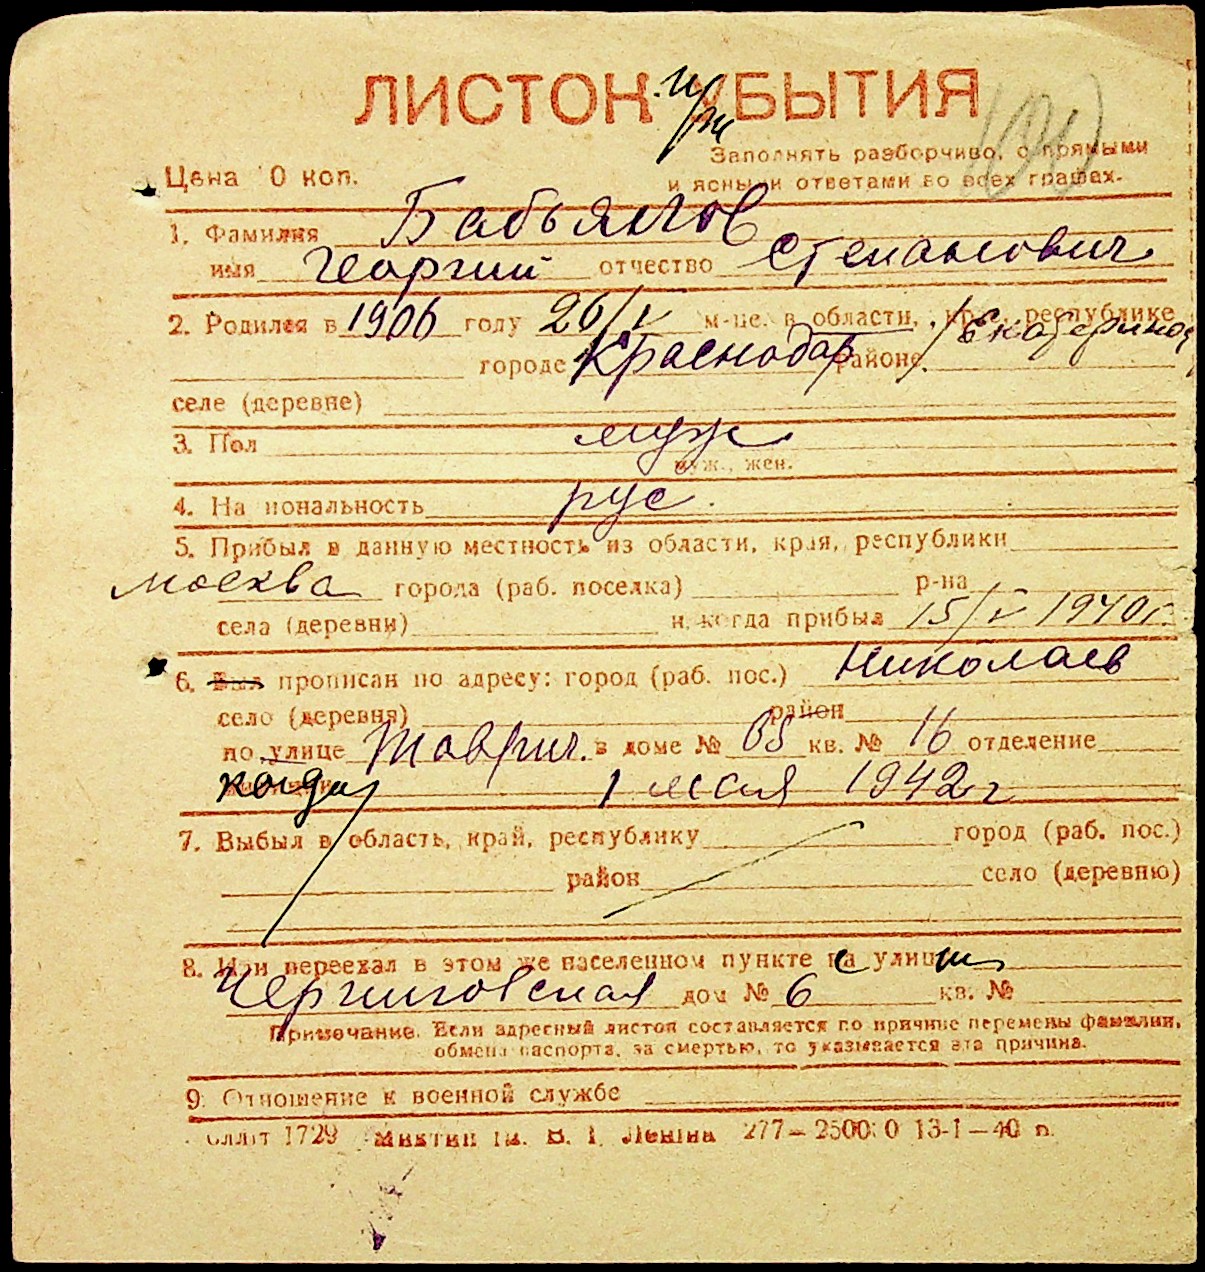 ЛИСТОК УБЫТИЯ
Заполнять разборчиво, с прямыми
и ясными ответами во всех графах.
Цена 10 коп.
1. Фамилия Бабьянов
имя Георгий отчество Степанович
2. Родился в 1906 году 26/V м-це. в области, края, республике
городе Краснодар районе /Екатеринод
селе (деревне)
3. Пол муж
муж., жен.
4. Национальность рус.
5. Прибыл в данную местность из области, края, республики
Москва города (раб. поселка) р-на
села (деревни) и когда прибыл 15/V 1940 г.
6. Был прописан по адресу: город (раб. пос.) Николаев
село (деревня) район
по улице Таврич. в доме № 65 кв. № 16 отделение
когда 1 мая 1942 г
7. Выбыл в область, край, республику город (раб. пос.)
район село (деревню)
8. Или переехал в этом же населенном пункте с улицы
Черниговская дом № 6 кв. №
Примечание. Если адресный листок составляется по причине перемены фамилии,
обмена паспорта, за смертью, то указывается эта причина.
9. Отношение к военной службе
1729 ім. В. І. Леніна 277—25000 13-I—40 р.